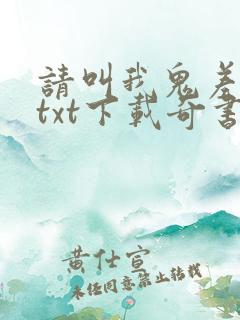 請叫我鬼差
txt下載奇書
黄仕宣
未经同意禁止转载